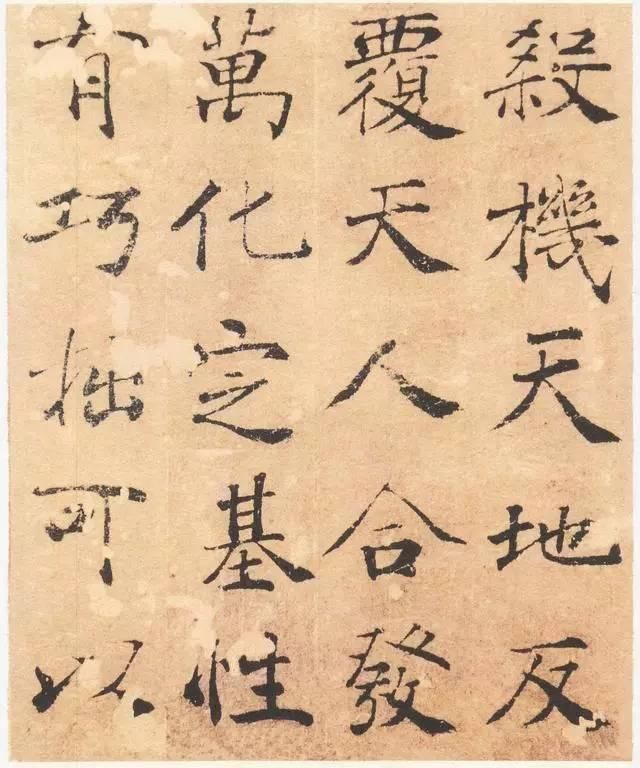 殺機天地反
覆天人合發
萬化定基性
有巧拙可以